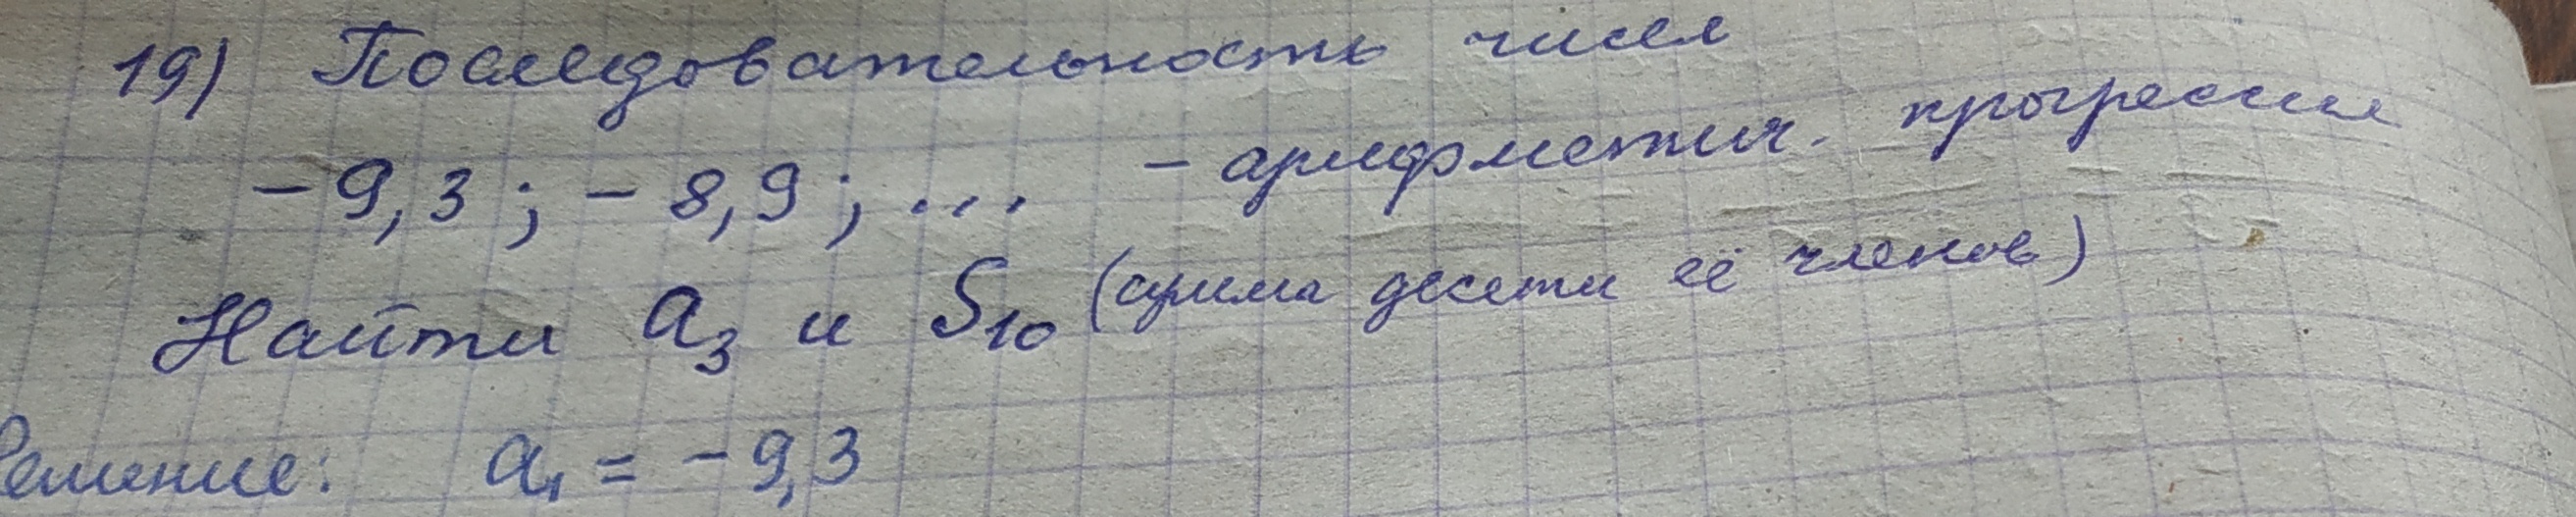 19) Последовательность чисел
-9,3; -8,9; ... - арифметич. прогрессия
Найти a₃ и S₁₀ (сумма десяти её членов)
Решение: a₁ = -9,3